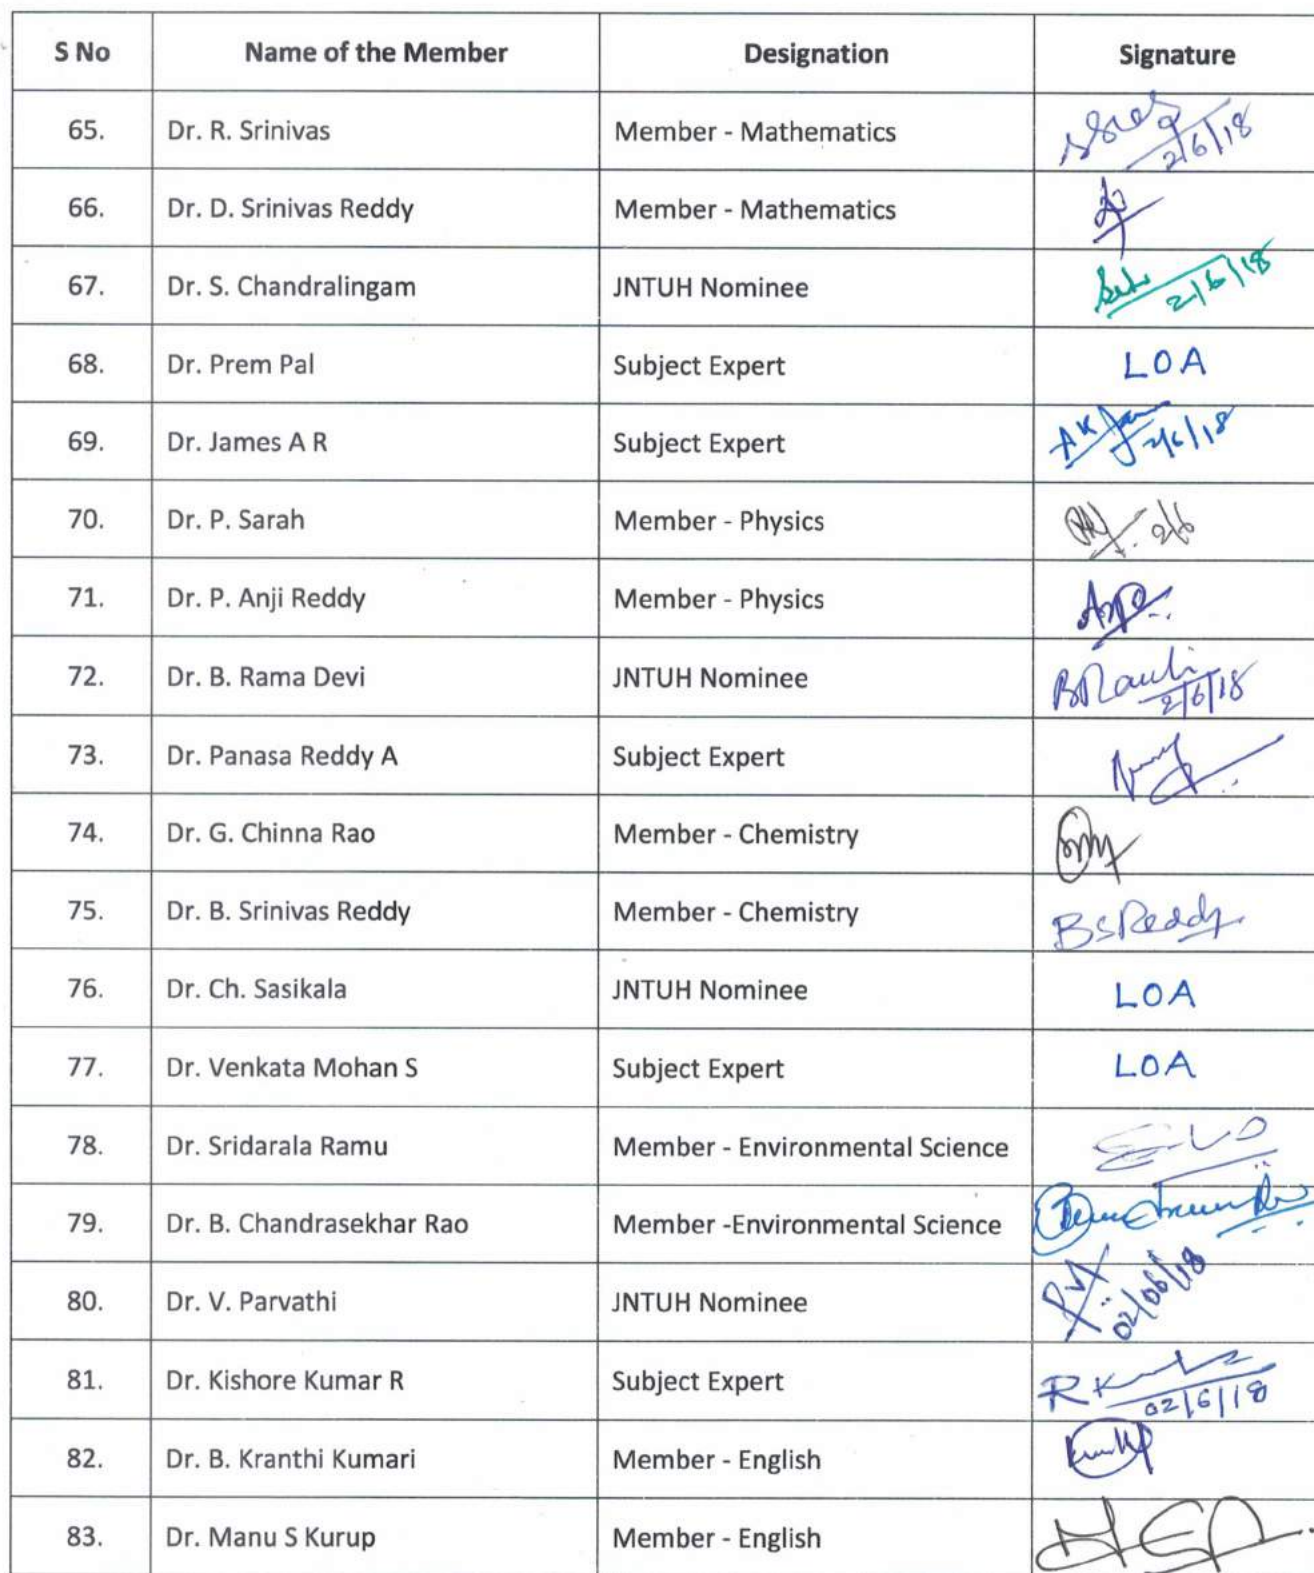 S No Name of the Member Designation Signature
65. Dr. R. Srinivas Member - Mathematics 2/6/18
66. Dr. D. Srinivas Reddy Member - Mathematics
67. Dr. S. Chandralingam JNTUH Nominee 2/6/18
68. Dr. Prem Pal Subject Expert LOA
69. Dr. James A R Subject Expert 2/6/18
70. Dr. P. Sarah Member - Physics 2/6
71. Dr. P. Anji Reddy Member - Physics
72. Dr. B. Rama Devi JNTUH Nominee 2/6/18
73. Dr. Panasa Reddy A Subject Expert
74. Dr. G. Chinna Rao Member - Chemistry
75. Dr. B. Srinivas Reddy Member - Chemistry BSReddy
76. Dr. Ch. Sasikala JNTUH Nominee LOA
77. Dr. Venkata Mohan S Subject Expert LOA
78. Dr. Sridarala Ramu Member - Environmental Science
79. Dr. B. Chandrasekhar Rao Member -Environmental Science
80. Dr. V. Parvathi JNTUH Nominee 02/06/18
81. Dr. Kishore Kumar R Subject Expert 02/6/18
82. Dr. B. Kranthi Kumari Member - English
83. Dr. Manu S Kurup Member - English